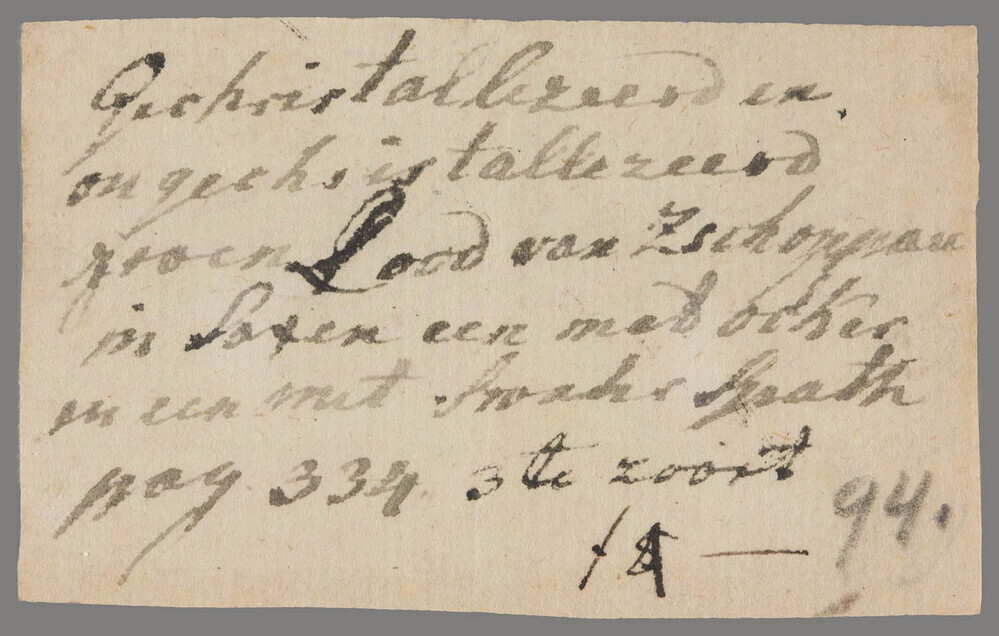 Gechristallezeerd en
ongechristallezeerd
groen Lood van Zschoppau
in Saxen een met ocker
en een met Swahr Spath
pag 334 3te zoort
94.